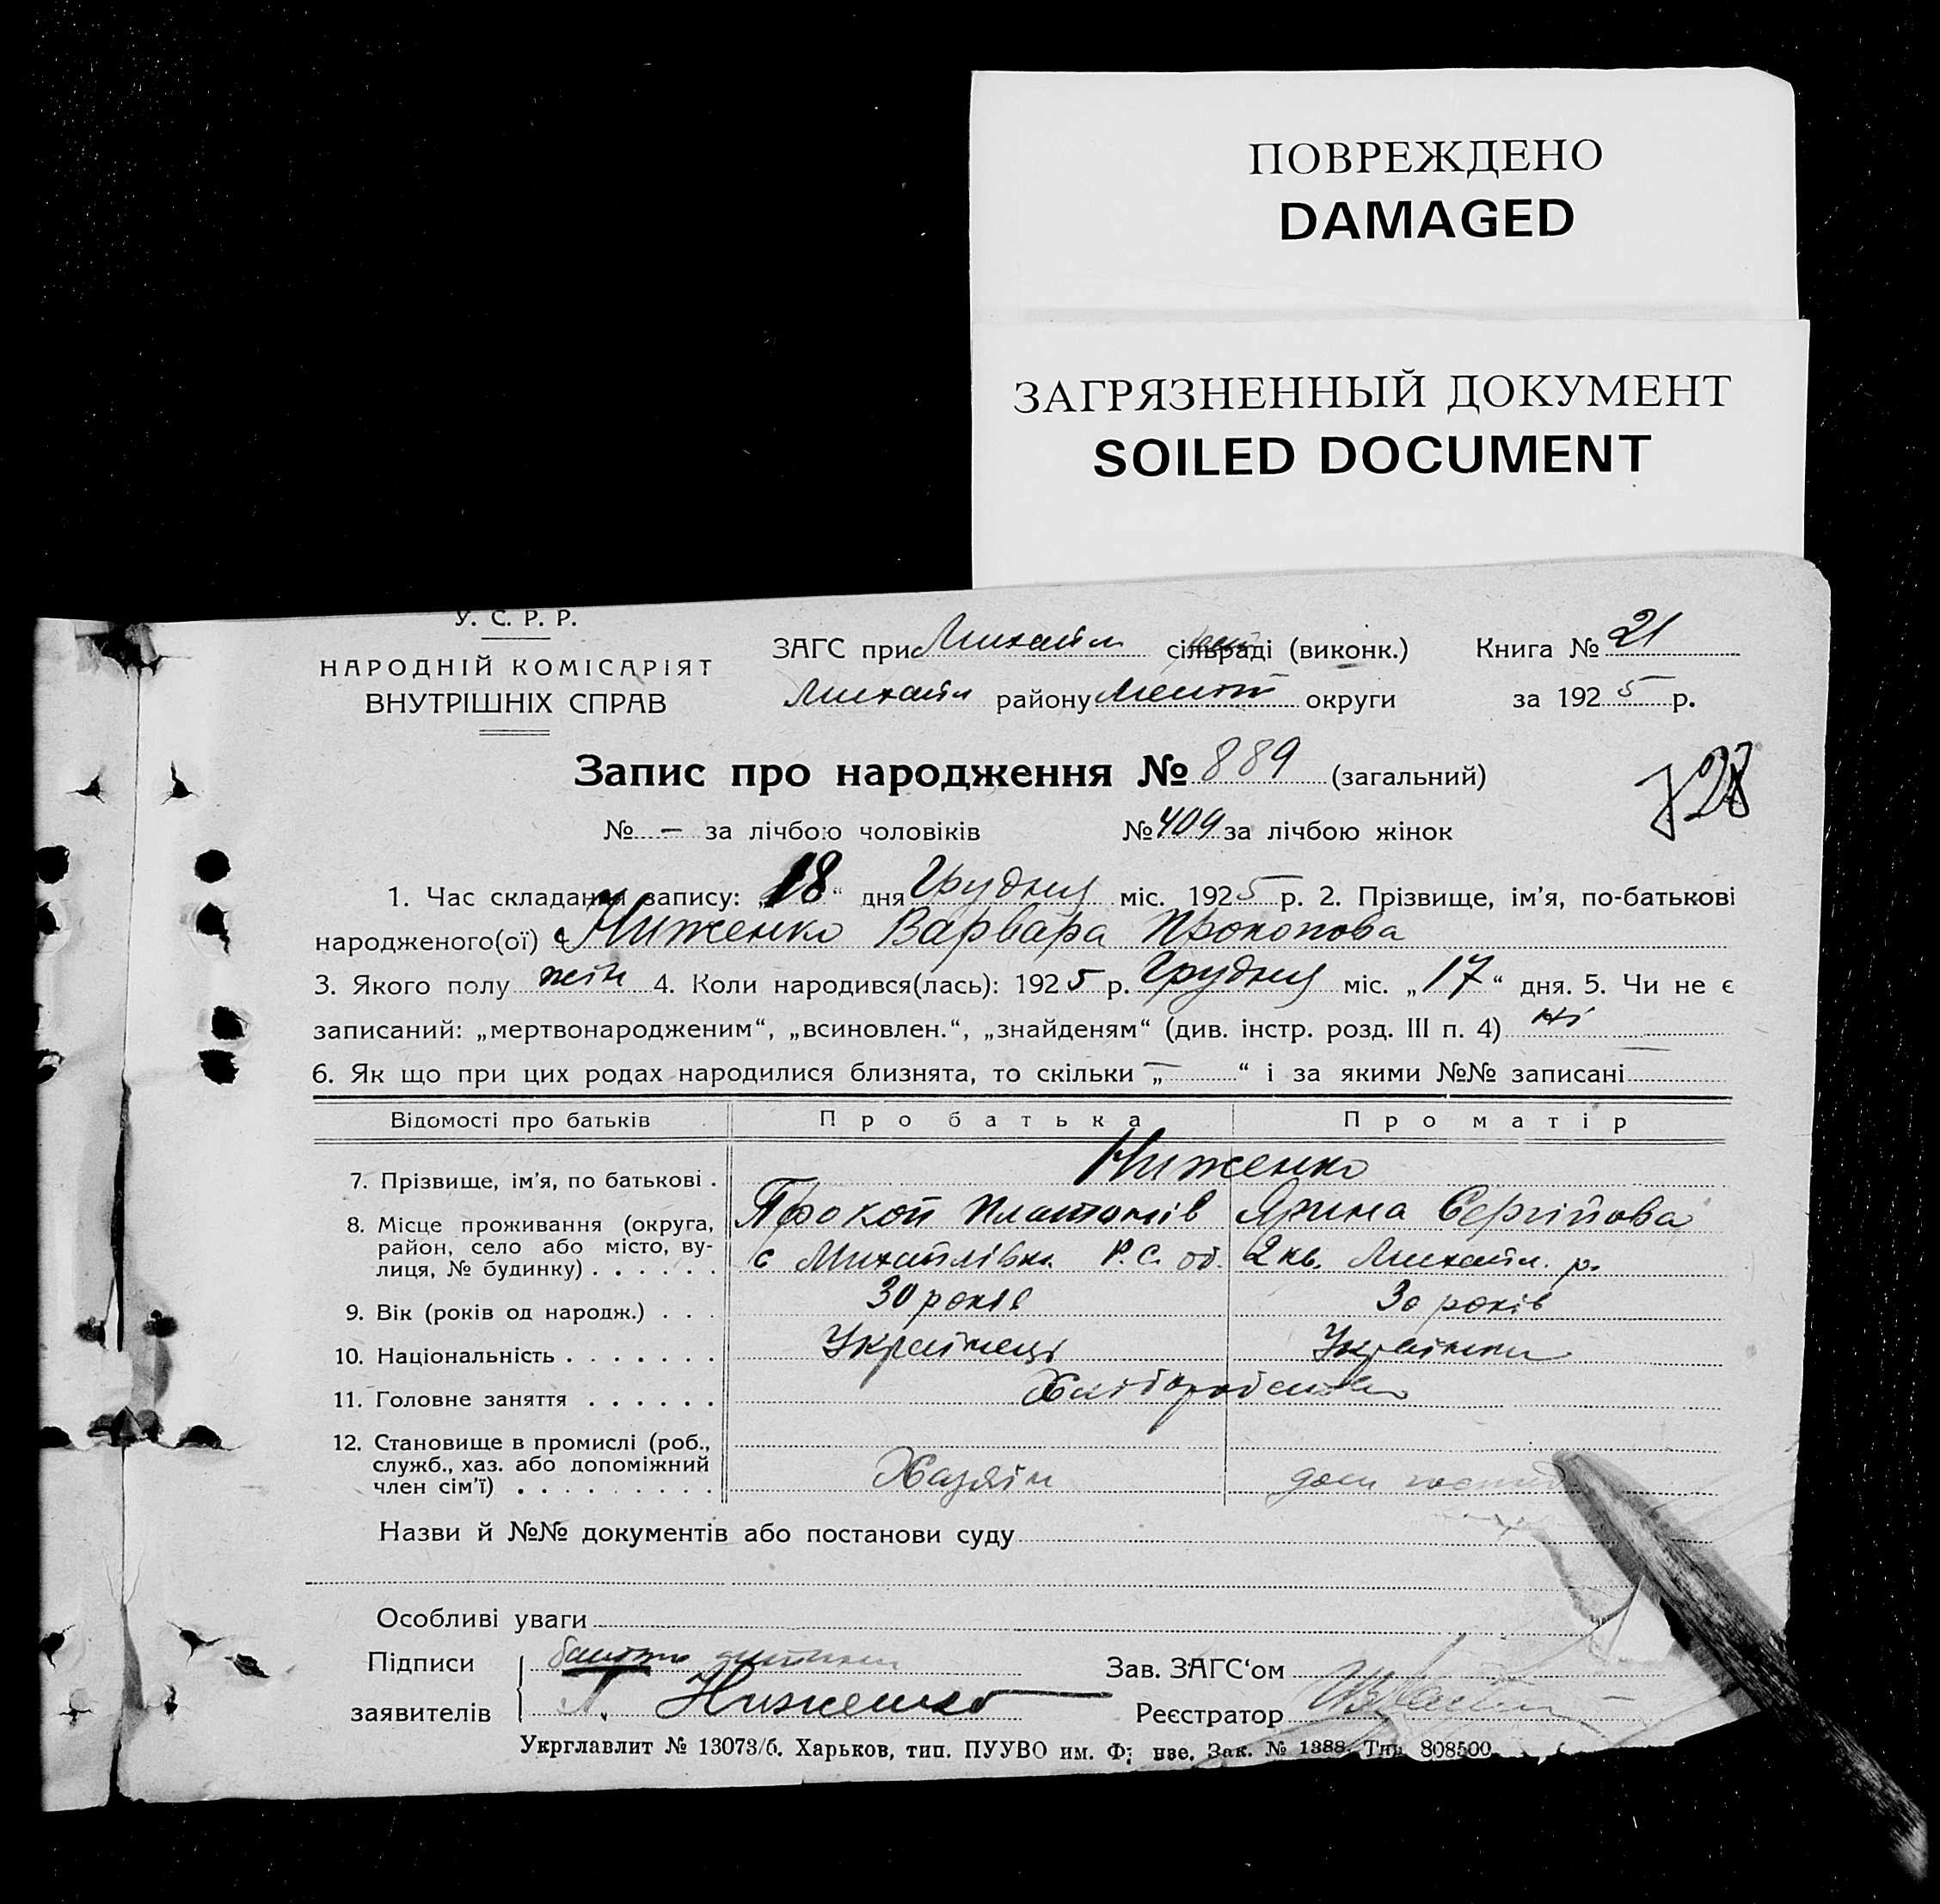 ПОВРЕЖДЕНО
DAMAGED
ЗАГРЯЗНЕННЫЙ ДОКУМЕНТ
SOILED DOCUMENT
У. С. Р. Р.
НАРОДНІЙ КОМІСАРІЯТ
ВНУТРІШНІХ СПРАВ
ЗАГС при Михайл сільраді (виконк.) Книга № 21
Михайл району округи за 1925 р.
Запис про народження № 889 (загальний)
728
№ — за лічбою чоловіків № 409 за лічбою жінок
1. Час складання запису: „18“ дня Грудня міс. 1925 р. 2. Прізвище, ім'я, по-батькові
народженого(ої) Ниженко Варвара Прокопова
3. Якого полу жін 4. Коли народився(лась): 1925 р. Грудня міс. „17“ дня. 5. Чи не є
записаний: „мертвонародженим“, „всиновлен.“, „знайденям“ (див. інстр. розд. III п. 4) ні
6. Як що при цих родах народилися близнята, то скільки „—“ і за якими №№ записані
Відомості про батьків Про батька Про матір
7. Прізвище, ім'я, по батькові . Ниженко
8. Місце проживання (округа, район, село або місто, вулиця, № будинку) . . . . . . Прокоп Платонів Ярина Сергійова
с Михайлівка Р.С. об. 2 кв. Михайл. р.
9. Вік (років од народж.) . . . 30 років 30 років
10. Національність . . . . . . . Українець Українка
11. Головне заняття . . . . . . Хліборобство
12. Становище в промислі (роб., служб., хаз. або допоміжний член сім'ї) . . . . . . . . . Хазяїн дом
Назви й №№ документів або постанови суду
Особливі уваги
Підписи батько дитини Зав. ЗАГС‘ом
заявителів П. Ниженко Реєстратор
Укрглавлит № 13073/б. Харьков, тип. ПУУВО им. Ф; нзе. Зак. № 1388. Тир. 808500